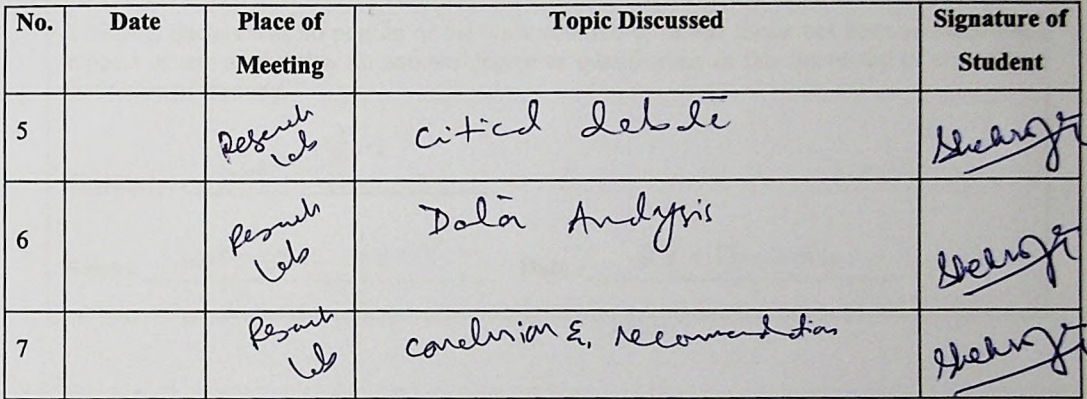 No. Date Place of Meeting Topic Discussed Signature of Student
5 Research Lab Critical debate
6 Research Lab Data Analysis
7 Research Lab conclusion & recommendation